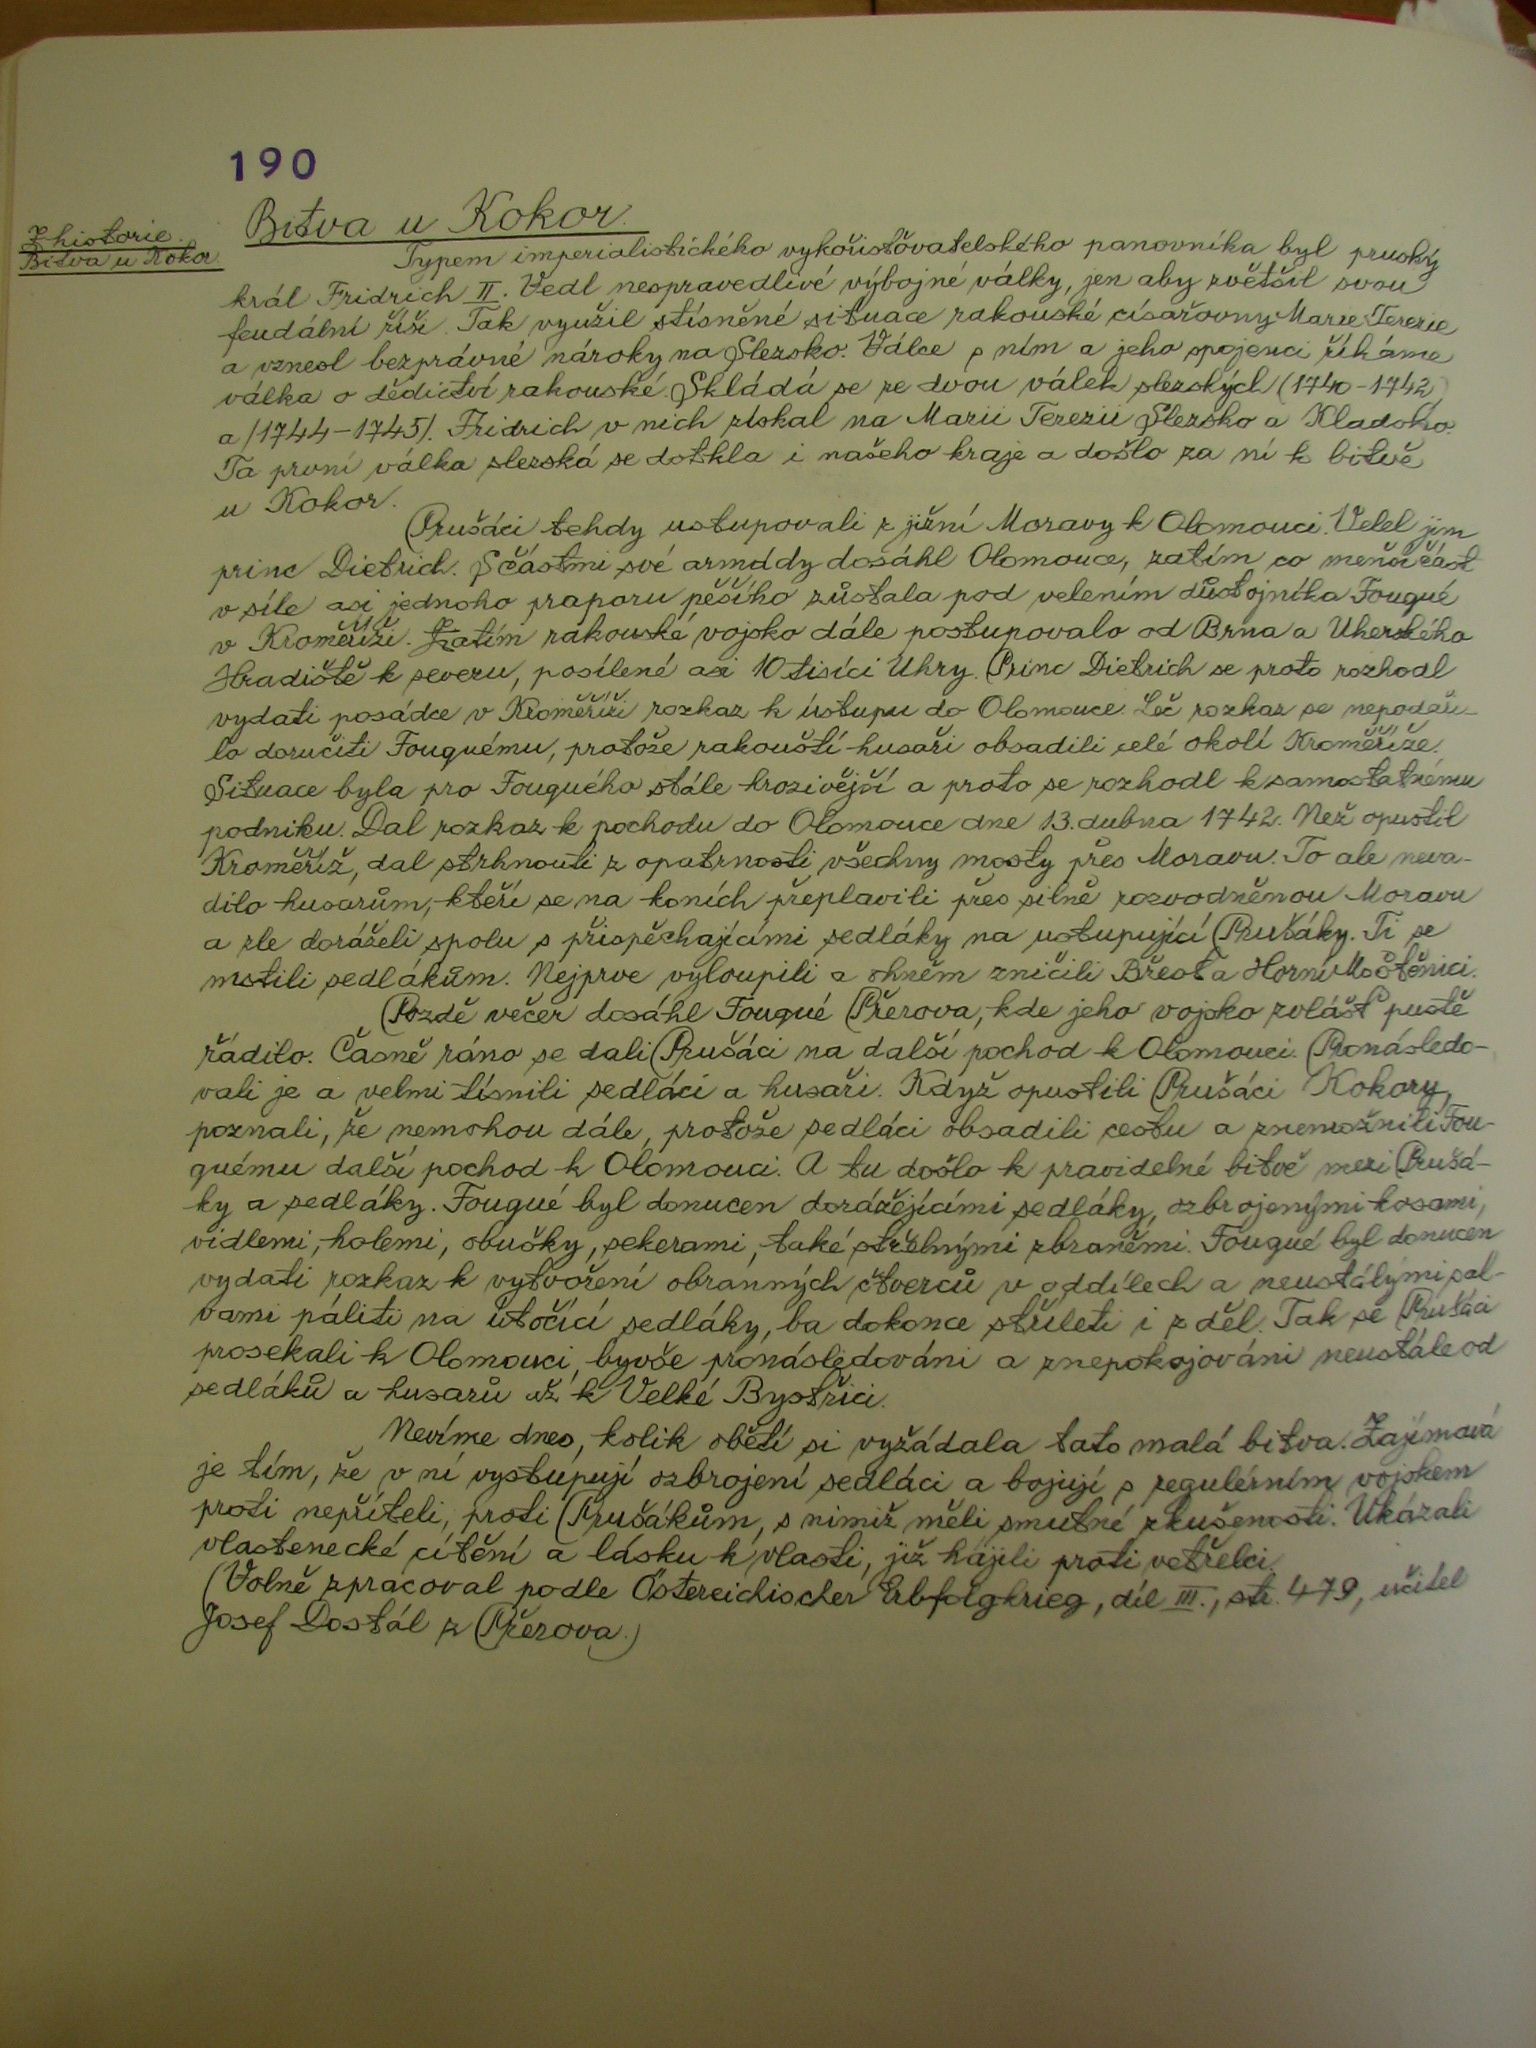 190
Z historie.
Bitva u Kokor
Bitva u Kokor.
Typem imperialistického vykořisťovatelského panovníka byl pruský
král Fridrich II. Vedl nespravedlivé výbojné války, jen aby zvětšil svou
feudální říši. Tak využil stísněné situace rakouské císařovny Marie Terezie
a vznesl bezprávné nároky na Slezsko. Válce s ním a jeho spojenci říkáme
válka o dědictví rakouské. Skládá se ze dvou válek slezských (1740-1742)
a (1744-1745). Fridrich v nich získal na Marii Terezii Slezsko a Kladsko.
Ta první válka slezská se dotkla i našeho kraje a došlo za ní k bitvě
u Kokor.
Prušáci tehdy ustupovali z jižní Moravy k Olomouci. Velel jim
princ Dietrich. S částmi své armády dosáhl Olomouce, zatím co menší část
v síle asi jednoho praporu pěšího zůstala pod velením důstojníka Fouqué
v Kroměříži. Zatím rakouské vojsko dále postupovalo od Brna a Uherského
Hradiště k severu, posílené asi 10 tisíci Uhry. Princ Dietrich se proto rozhodl
vydati posádce v Kroměříži rozkaz k ústupu do Olomouce. Leč rozkaz se nepodaři-
lo doručiti Fouquému, protože rakouští husaři obsadili celé okolí Kroměříže.
Situace byla pro Fouquého stále hrozivější a proto se rozhodl k samostatnému
podniku. Dal rozkaz k pochodu do Olomouce dne 13. dubna 1742. Než opustil
Kroměříž, dal strhnouti z opatrnosti všechny mosty přes Moravu. To ale neva-
dilo husarům, kteří se na koních přeplavili přes silně rozvodněnou Moravu
a zle doráželi spolu s přispěchajícími sedláky na ustupující Prušáky. Ti se
mstili sedlákům. Nejprve vyloupili a ohněm zničili Břest a Horní Moštěnici.
Pozdě večer dosáhl Fouqué Přerova, kde jeho vojsko zvlášť pustě
řádilo. Časně ráno se dali Prušáci na další pochod k Olomouci. Pronásledo-
vali je a velmi tísnili sedláci a husaři. Když opustili Prušáci Kokory,
poznali, že nemohou dále, protože sedláci obsadili cestu a znemožnili Fou-
quému další pochod k Olomouci. A tu došlo k pravidelné bitvě mezi Prušá-
ky a sedláky. Fouqué byl donucen dorážějícími sedláky, ozbrojenými kosami,
vidlemi, holemi, obušky, sekerami, také střelnými zbraněmi. Fouqué byl donucen
vydati rozkaz k vytvoření obranných čtverců v oddílech a neustálými sal-
vami páliti na útočící sedláky, ba dokonce stříleti i z děl. Tak se Prušáci
prosekali k Olomouci, byvše pronásledováni a znepokojováni neustále od
sedláků a husarů až k Velké Bystřici.
Nevíme dnes, kolik obětí si vyžádala tato malá bitva. Zajímavá
je tím, že v ní vystupují ozbrojení sedláci a bojují s regulérním vojskem
proti nepříteli, proti Prušákům, s nimiž měli smutné zkušenosti. Ukázali
vlastenecké cítění a lásku k vlasti, již hájili proti vetřelci.
(Volně zpracoval podle Östereichischer Erbfolgkrieg, díl III., str. 479, učitel
Josef Dostál z Přerova.)